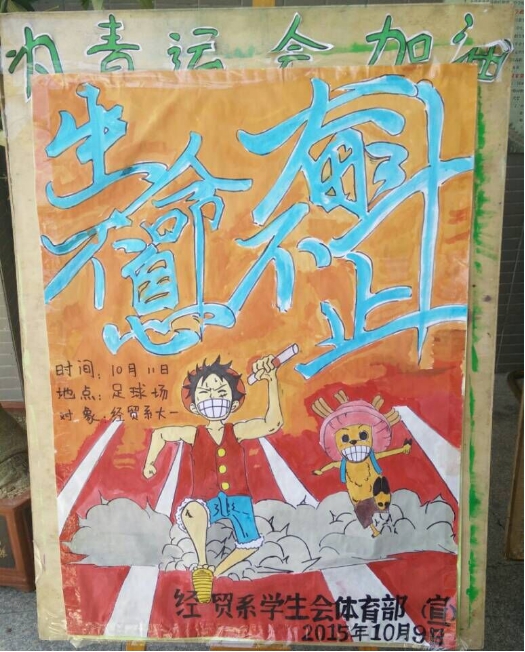 为青运会加油
生命不息
奋斗不止
时间：10月11日
地点：足球场
对象：经贸系大一
经贸系学生会体育部（宣）
2015年10月9日